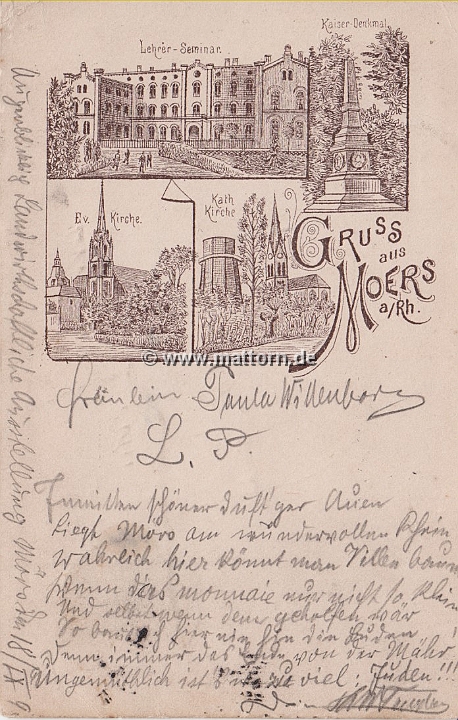 Lehrer-Seminar.
Kaiser-Denkmal.
Ev. Kirche.
Kath.
Kirche
GRUSS
aus
MOERS
a/Rh.
© www.mattorn.de
Fräulein Paula Willenborg
L. P.
Inmitten schöner duft'ger Auen
Liegt Mörs am wundervollen Rhein
Wahrlich hier könnt man Villen bauen
Wenn das monnaie nur nicht so klein
Und selbst wenn dem geholfen wär
So baut hier nie
Denn immer das Ende von der Mähr
Ungemüthlich ist es zu viel Juden!!!
landwirthschaftliche Ausstellung Mörs den 18 IX 9